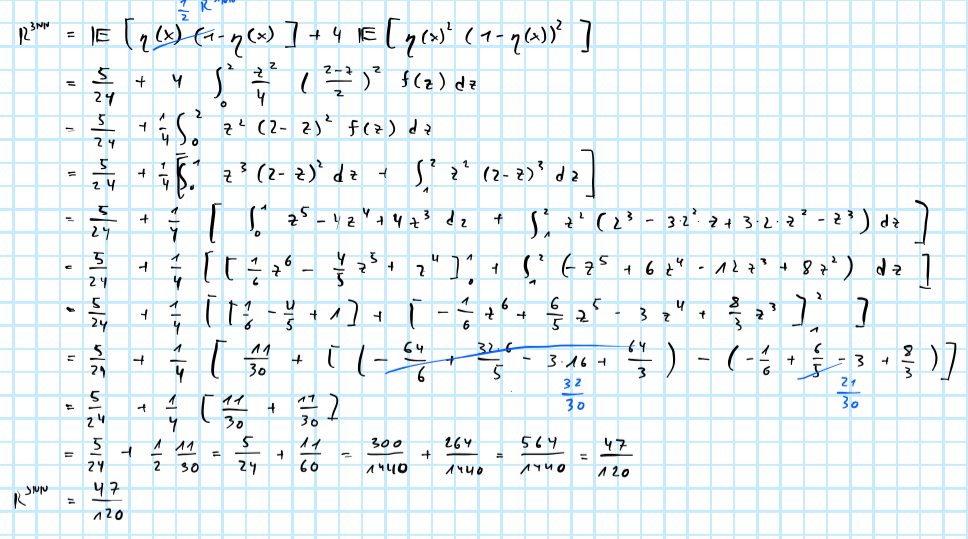 1/2 R^NN
R^3NN = IE [ η(x) (1-η(x) ] + 4 IE [ η(x)² (1-η(x))² ]
= 5/24 + 4 ∫_0^2 z²/4 ( (2-z)/2 )² f(z) dz
= 5/24 + 1/4 ∫_0^2 z² (2-z)² f(z) dz
= 5/24 + 1/4 [ ∫_0^1 z³ (2-z)² dz + ∫_1^2 z² (2-z)³ dz ]
= 5/24 + 1/4 [ ∫_0^1 z⁵ - 4z⁴ + 4z³ dz + ∫_1^2 z² (2³ - 3·2²·z + 3·2·z² - z³) dz ]
= 5/24 + 1/4 [ [ 1/6 z⁶ - 4/5 z⁵ + z⁴ ]_0^1 + ∫_1^2 (-z⁵ + 6z⁴ - 12z³ + 8z²) dz ]
= 5/24 + 1/4 [ [ 1/6 - 4/5 + 1 ] + [ - 1/6 z⁶ + 6/5 z⁵ - 3z⁴ + 8/3 z³ ]_1^2 ]
= 5/24 + 1/4 [ 11/30 + [ ( - 64/6 + 32·6/5 - 3·16 + 64/3 ) - ( - 1/6 + 6/5 - 3 + 8/3 ) ]
32/30 21/30
= 5/24 + 1/4 [ 11/30 + 11/30 ]
= 5/24 + 1/2 11/30 = 5/24 + 11/60 = 300/1440 + 264/1440 = 564/1440 = 47/120
R^3NN = 47/120